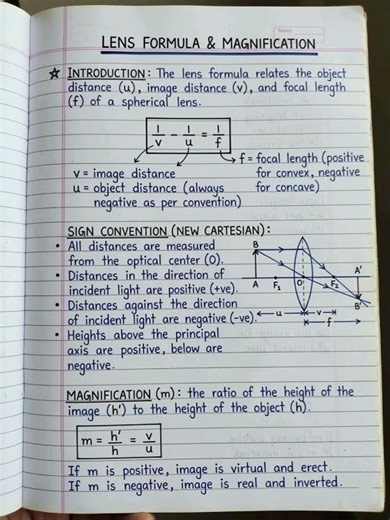 Name
LENS FORMULA & MAGNIFICATION
☆ INTRODUCTION: The lens formula relates the object
distance (u), image distance (v), and focal length
(f) of a spherical lens.
1/v - 1/u = 1/f
f = focal length (positive
for convex, negative
for concave)
v = image distance
u = object distance (always
negative as per convention)
SIGN CONVENTION (NEW CARTESIAN):
• All distances are measured
from the optical center (O).
• Distances in the direction of
incident light are positive (+ve).
• Distances against the direction
of incident light are negative (-ve).
• Heights above the principal
axis are positive, below are
negative.
B
A'
A F₁ O F₂
B'
u v
f
MAGNIFICATION (m): the ratio of the height of the
image (h') to the height of the object (h).
m = h'/h = v/u
If m is positive, image is virtual and erect.
If m is negative, image is real and inverted.